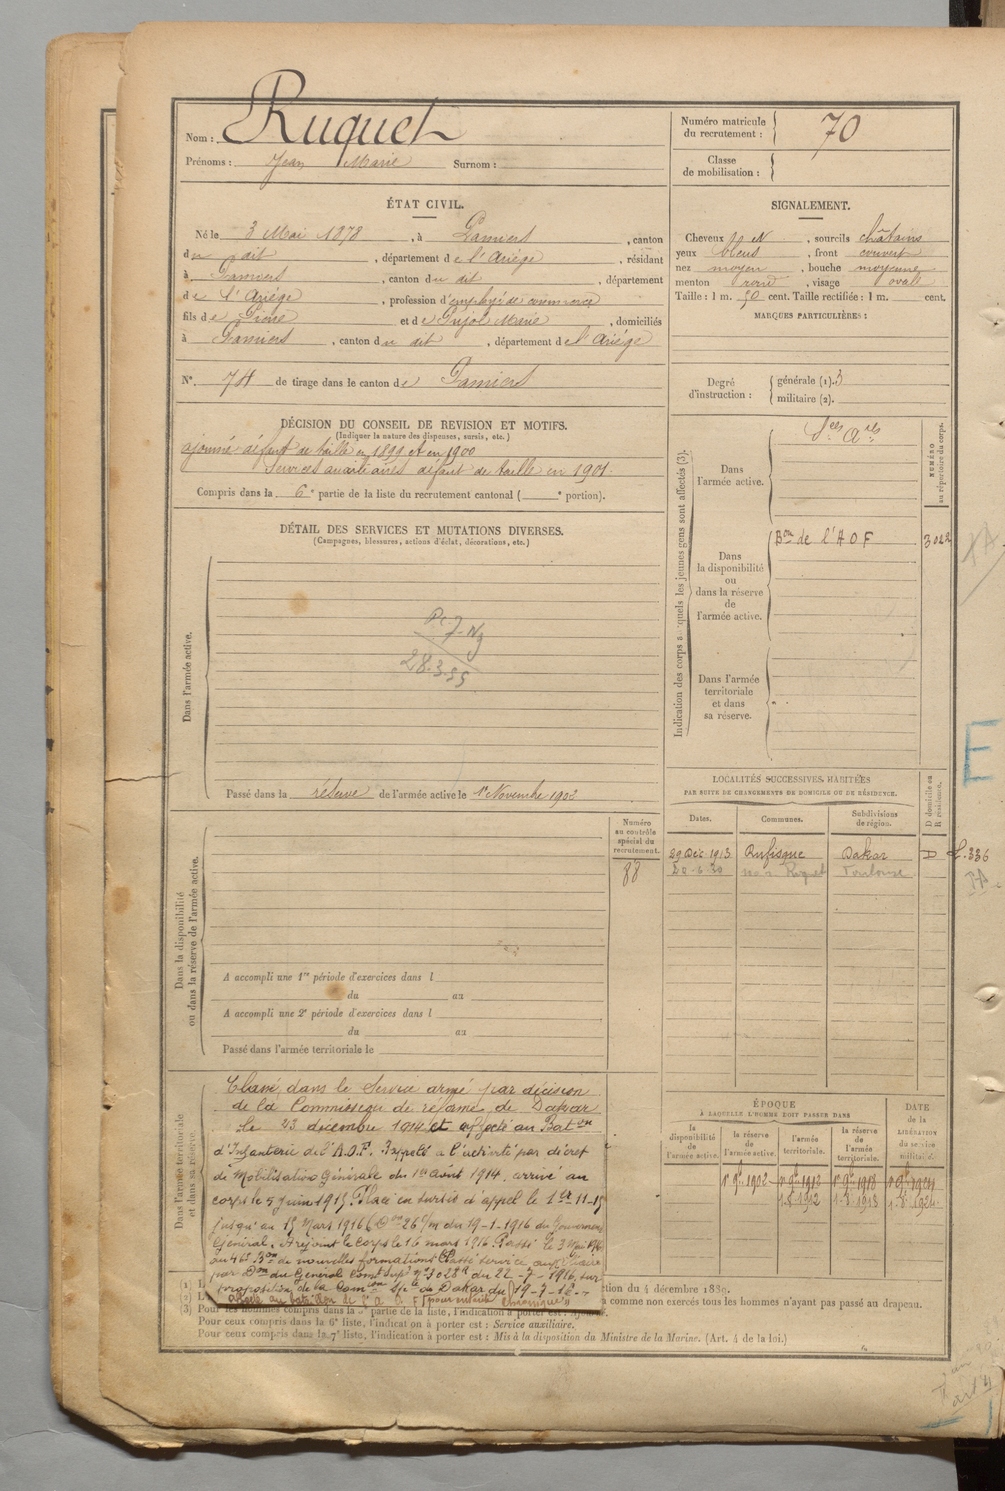 Nom : Ruquet
Prénoms : Jean Marie Surnom :
Numéro matricule du recrutement : 70
Classe de mobilisation :
ÉTAT CIVIL.
Né le 3 Mai 1878, à Pamiers, canton
du dit, département de l'Ariége, résidant
à Pamiers, canton du dit, département
de l'Ariége, profession d'employé de commerce
fils de Pierre et de Pujol Marie, domiciliés
à Pamiers, canton du dit, département de l'Ariége
N° 74 de tirage dans le canton de Pamiers
SIGNALEMENT.
Cheveux et, sourcils châtains
yeux bleus, front couvert
nez moyen, bouche moyenne
menton rond, visage ovale
Taille : 1 m. 50 cent. Taille rectifiée : 1 m. cent.
MARQUES PARTICULIÈRES :
Degré d'instruction : générale (1). 3
militaire (2).
DÉCISION DU CONSEIL DE REVISION ET MOTIFS.
(Indiquer la nature des dispenses, sursis, etc.)
ajourné défaut de taille en 1899 et en 1900
Services auxiliaires défaut de taille en 1901.
Compris dans la 6e partie de la liste du recrutement cantonal ( e portion).
DÉTAIL DES SERVICES ET MUTATIONS DIVERSES.
(Campagnes, blessures, actions d'éclat, décorations, etc.)
Dans l'armée active.
28.3.55
Passé dans la réserve de l'armée active le 1er Novembre 1902
Indication des corps auxquels les jeunes gens sont affectés (3).
NUMÉRO au répertoire du corps.
Dans l'armée active.
Dans la disponibilité ou dans la réserve de l'armée active.
Bon de l'A O F 3022
Dans l'armée territoriale et dans sa réserve.
LOCALITÉS SUCCESSIVES HABITÉES
PAR SUITE DE CHANGEMENTS DE DOMICILE OU DE RÉSIDENCE.
D domicile ou R résidence.
Dates. Communes. Subdivisions de région.
29 Déc. 1913 Rufisque Dakar D f. 336
Toulouse
E
Dans la disponibilité ou dans la réserve de l'armée active.
Numéro au contrôle spécial du recrutement.
88
A accompli une 1re période d'exercices dans l
du au
A accompli une 2e période d'exercices dans l
du au
Passé dans l'armée territoriale le
Dans l'armée territoriale et dans sa réserve.
Classé dans le Service armé par décision
de la Commission de réforme de Dakar
le 23 décembre 1914 et affecté au Baton
d'Infanterie de l'A.O.F. Rappelé à l'activité par décret
de Mobilisation Générale du 1er août 1914, arrivé au
corps le 5 juin 1915. Placé en sursis d'appel le 1er-11-15
jusqu'au 15 Mars 1916 (Don 26 c/m du 19-1-1916 du Gouverneur
Général. A rejoint le corps le 16 mars 1916. Passé le 3 Mai 1916
au 46e Bon de nouvelles formations. Classé service auxiliaire
par Don du Général Comt Supr n° 3028 du 22-7-1916, sur
proposition de la Comon Sle de Dakar du 19-7-16
ÉPOQUE
À LAQUELLE L'HOMME DOIT PASSER DANS
la disponibilité de l'armée active. la réserve de l'armée active. l'armée territoriale. la réserve de l'armée territoriale.
DATE de la LIBÉRATION du service militaire.
1er 9bre 1902 1er 9bre 1912 1er 9bre 1918 1er 9bre 1924
1.8.1912 1.8.1918 1.8.1924
ction du 4 décembre 1889.
à comme non exercés tous les hommes n'ayant pas passé au drapeau.
Pour ceux compris dans la 6e liste, l'indication à porter est : Service auxiliaire.
Pour ceux compris dans la 7e liste, l'indication à porter est : Mis à la disposition du Ministre de la Marine. (Art. 4 de la loi.)